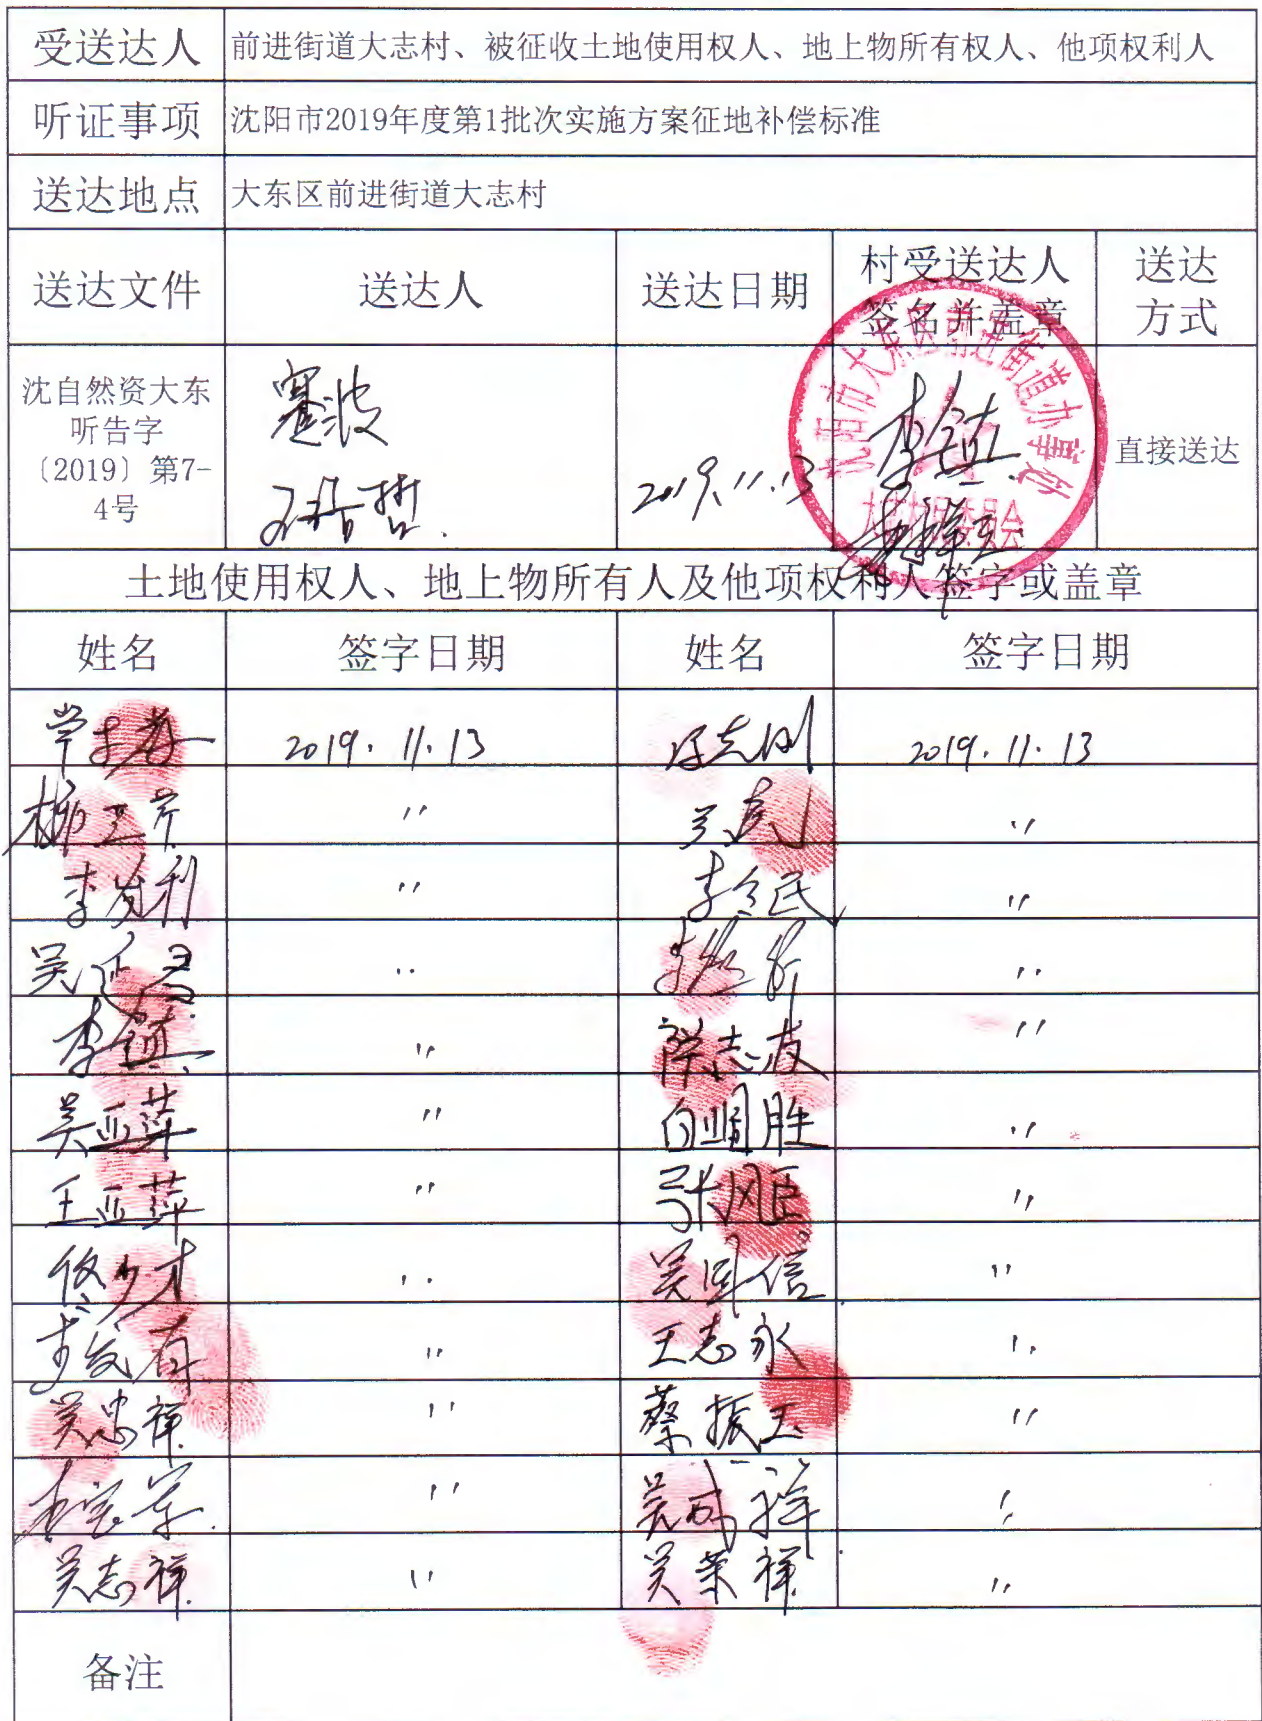 受送达人 前进街道大志村、被征收土地使用权人、地上物所有权人、他项权利人
听证事项 沈阳市2019年度第1批次实施方案征地补偿标准
送达地点 大东区前进街道大志村
送达文件 送达人 送达日期 村受送达人签名并盖章 送达方式
沈自然资大东
听告字
〔2019〕第7-
4号
2019.11.13
李镇
直接送达
沈阳市大东区前进街道办事处
大志村村民委员会
土地使用权人、地上物所有人及他项权利人签字或盖章
姓名 签字日期 姓名 签字日期
2019.11.13 2019.11.13
〃 〃
李发利 〃 〃
吴延君 〃 〃
李镇 〃 志友 〃
吴亚萍 〃 白国胜 〃
王亚萍 〃 张风臣 〃
佟少才 〃 吴军信 〃
李发有 〃 王志永 〃
吴忠祥 〃 蔡振玉 〃
〃 吴成祥 〃
吴志祥 〃 吴荣祥 〃
备注